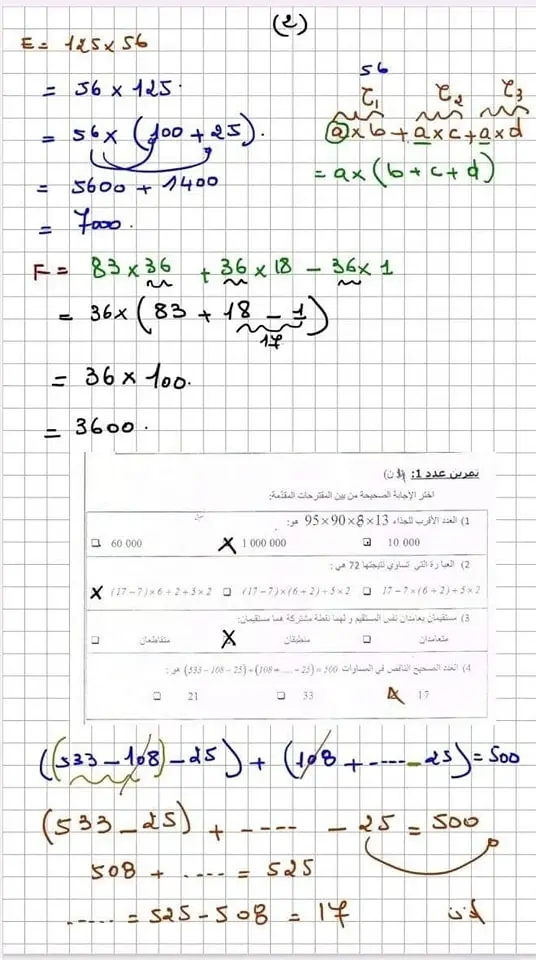 (2)
E = 125 × 56
= 56 × 125.
= 56 × (100 + 25).
= 5600 + 1400
= 7000.
56
τ1 τ2 τ3
a × b + a × c + a × d
= a × (b + c + d)
F = 83 × 36 + 36 × 18 - 36 × 1
= 36 × (83 + 18 - 1)
17
= 36 × 100.
= 3600.
تمرين عدد 1:
اختر الإجابة الصحيحة من بين المقترحات المقدّمة:
1) العدد الأقرب للجذاء 95×90×8×13 هو:
60 000 X 1 000 000 10 000
2) العبارة التي تساوي نتيجتها 72 هي :
X (17-7)×6+2+5×2 (17-7)×(6+2)+5×2 17-7×(6+2)+5×2
3) مستقيمان يعامدان نفس المستقيم و لهما نقطة مشتركة هما مستقيمان:
متعامدان X منطبقان متقاطعان
4) العدد الصحيح الناقص في المساوات (533-108-25)+(108+....-25)=500 هو :
21 33 17
((533 - 108) - 25) + (108 + ---- - 25) = 500
(533 - 25) + ---- - 25 = 500
508 + .... = 525
..... = 525 - 508 = 17